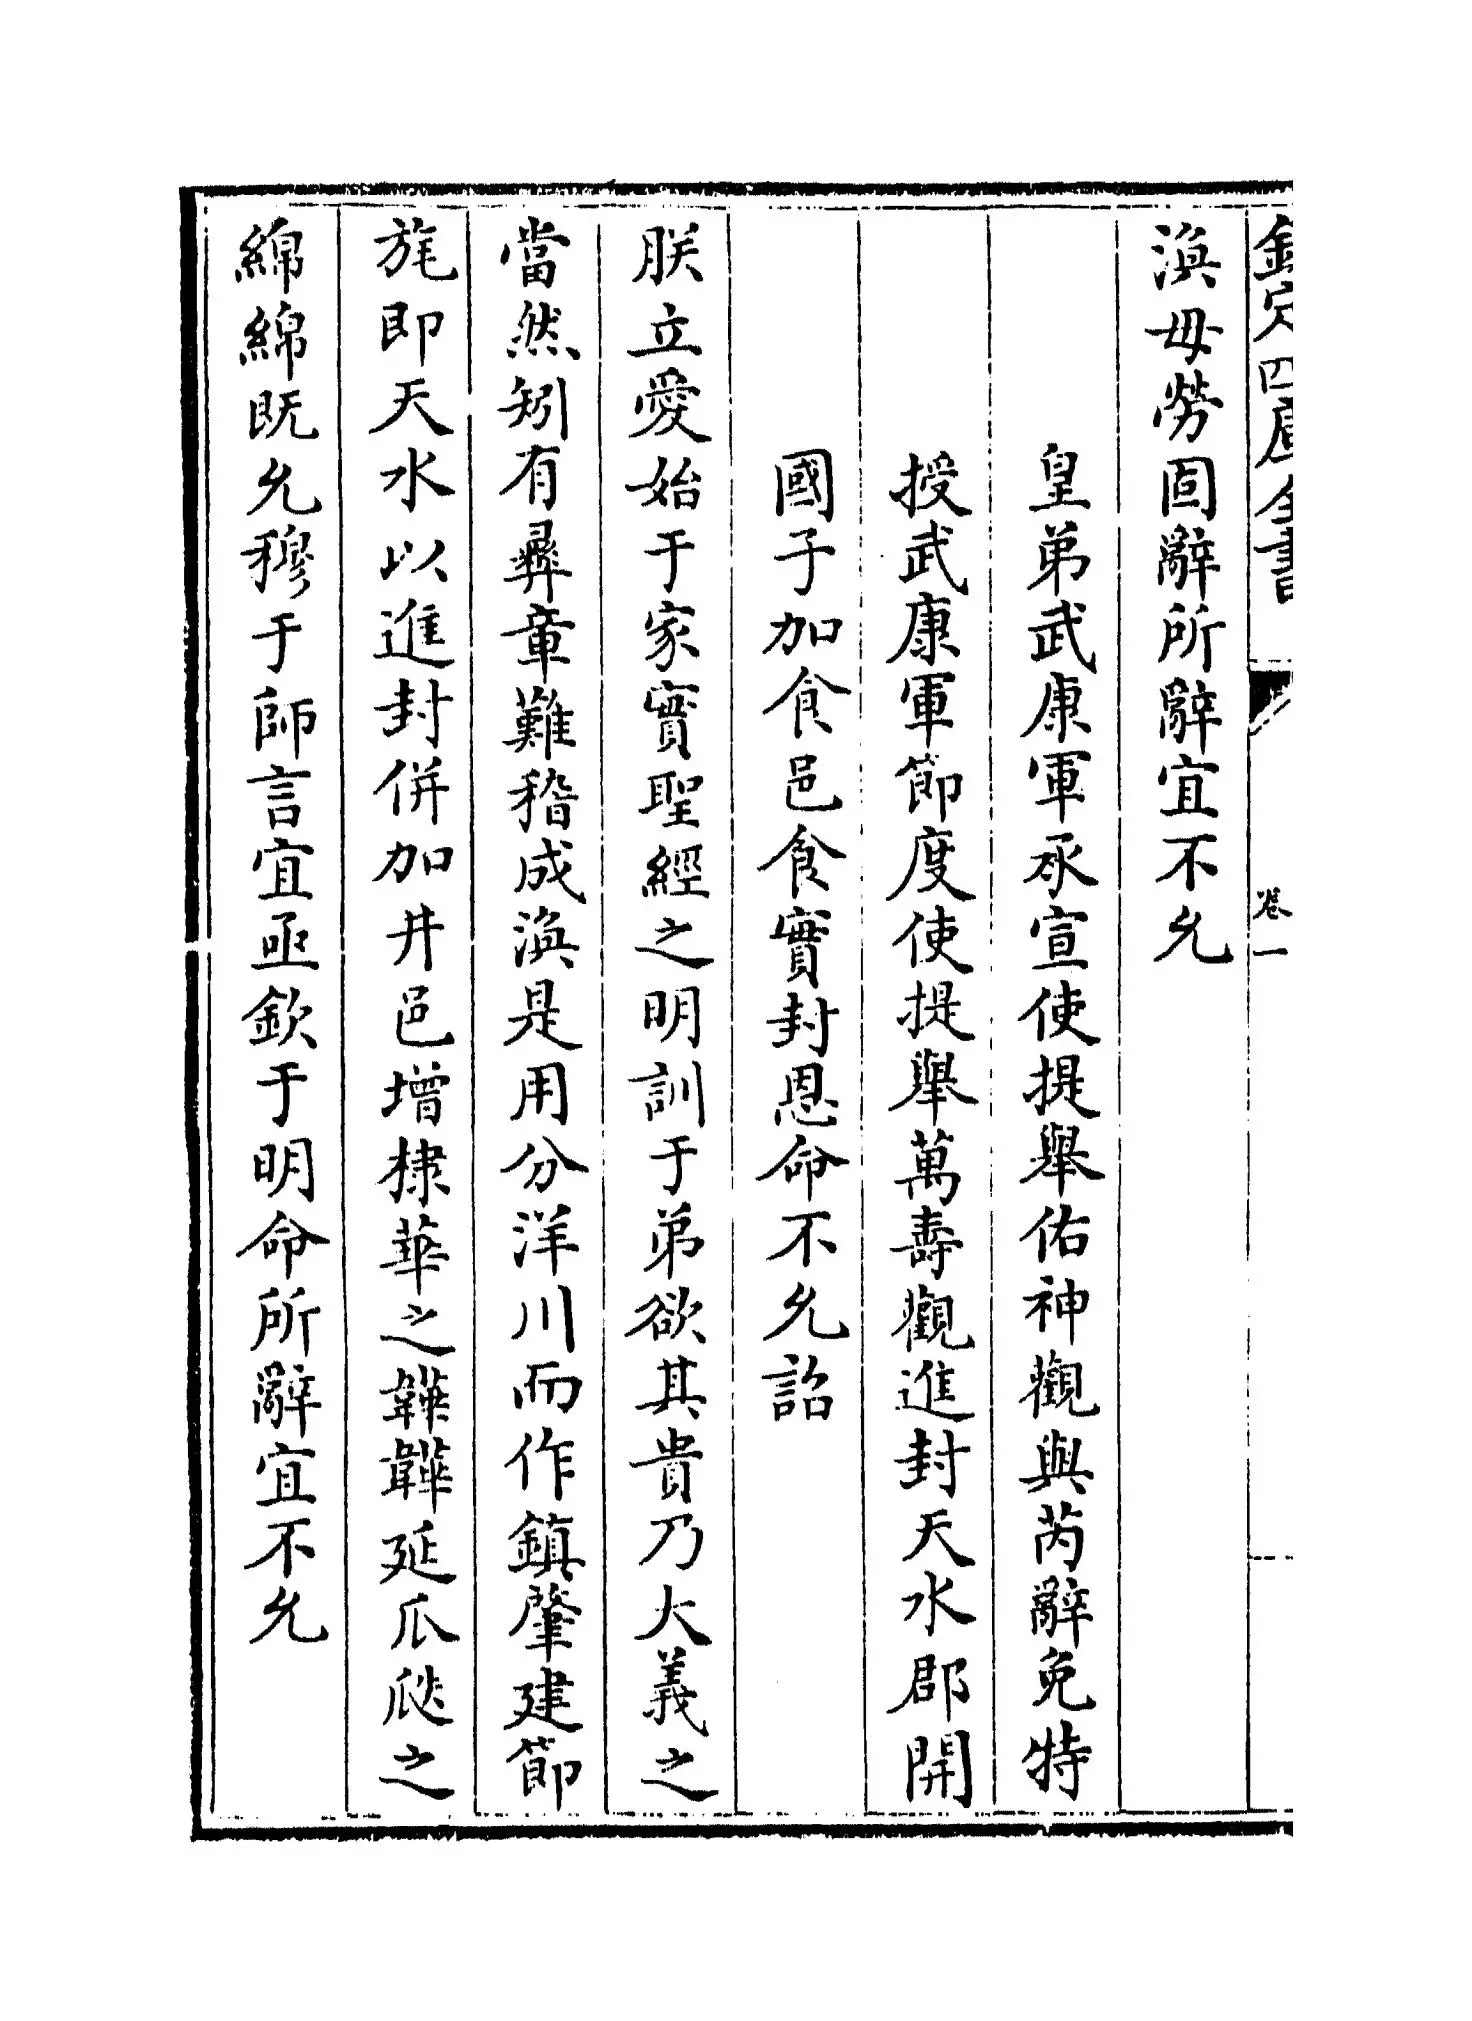 欽定四庫全書
卷一
渙毋勞固辭所辭宜不允
皇弟武康軍承宣使提舉佑神觀與芮辭免特
授武康軍節度使提舉萬壽觀進封天水郡開
國子加食邑食實封恩命不允詔
朕立愛始于家實聖經之明訓于弟欲其貴乃大義之
當然矧有彞章難稽成渙是用分洋川而作鎮肇建節
旄即天水以進封併加井邑增棣華之韡韡延瓜瓞之
綿綿既允穆于師言宜亟欽于明命所辭宜不允